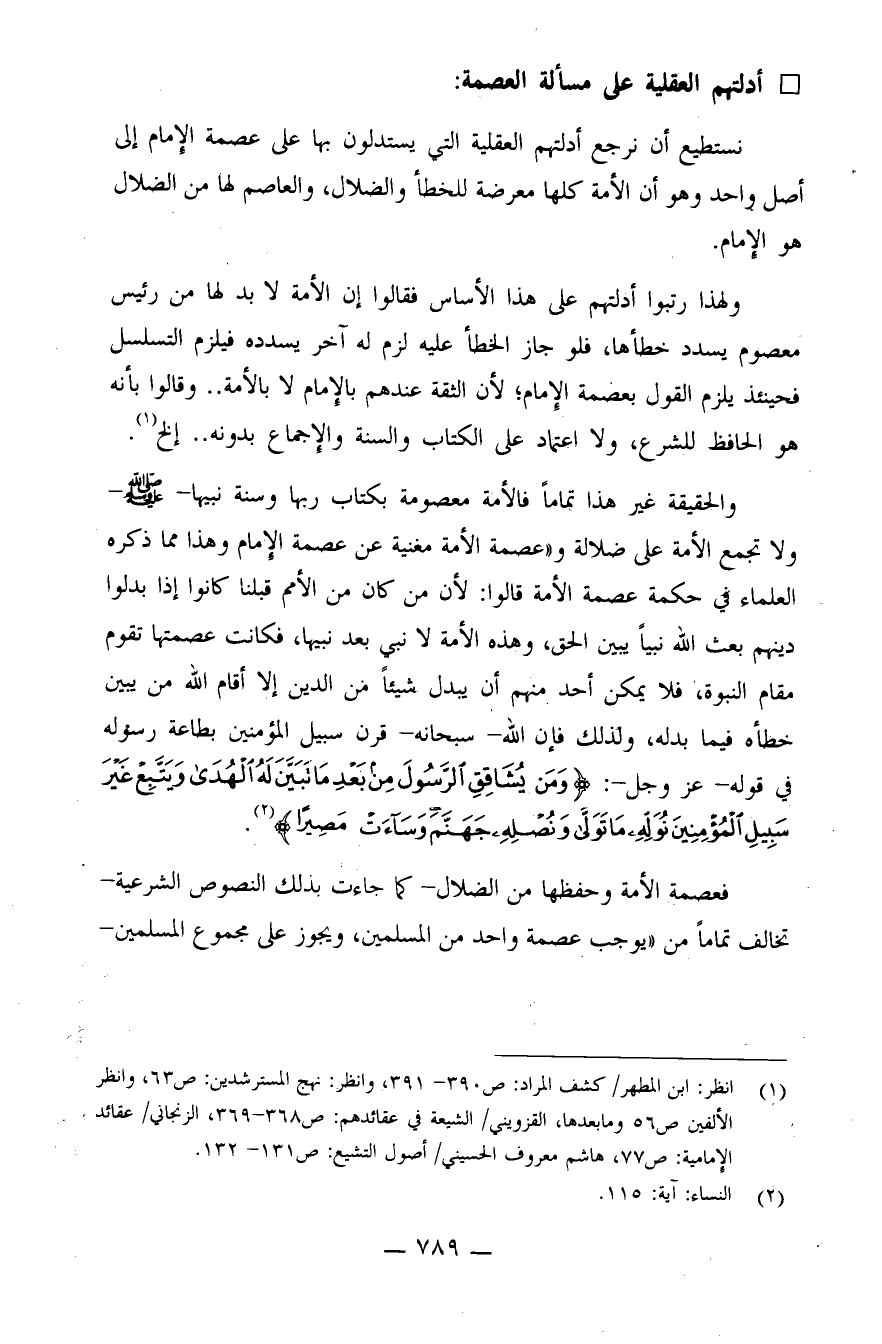 □ أدلتهم العقلية على مسألة العصمة:
نستطيع أن نرجع أدلتهم العقلية التي يستدلون بها على عصمة الإمام إلى
أصل واحد وهو أن الأمة كلها معرضة للخطأ والضلال، والعاصم لها من الضلال
هو الإمام.
ولهذا رتبوا أدلتهم على هذا الأساس فقالوا إن الأمة لا بد لها من رئيس
معصوم يسدد خطأها، فلو جاز الخطأ عليه لزم له آخر يسدده فيلزم التسلسل
فحينئذ يلزم القول بعصمة الإمام؛ لأن الثقة عندهم بالإمام لا بالأمة.. وقالوا بأنه
هو الحافظ للشرع، ولا اعتماد على الكتاب والسنة والإجماع بدونه.. إلخ(١).
والحقيقة غير هذا تماماً فالأمة معصومة بكتاب ربها وسنة نبيها– ﷺ –
ولا تجمع الأمة على ضلالة و«عصمة الأمة مغنية عن عصمة الإمام وهذا مما ذكره
العلماء في حكمة عصمة الأمة قالوا: لأن من كان من الأمم قبلنا كانوا إذا بدلوا
دينهم بعث الله نبياً يبين الحق، وهذه الأمة لا نبي بعد نبيها، فكانت عصمتها تقوم
مقام النبوة، فلا يمكن أحد منهم أن يبدل شيئاً من الدين إلا أقام الله من يبين
خطأه فيما بدله، ولذلك فإن الله– سبحانه– قرن سبيل المؤمنين بطاعة رسوله
في قوله– عز وجل–: ﴿وَمَن يُشَاقِقِ ٱلرَّسُولَ مِنۢ بَعْدِ مَا تَبَيَّنَ لَهُ ٱلْهُدَىٰ وَيَتَّبِعْ غَيْرَ
سَبِيلِ ٱلْمُؤْمِنِينَ نُوَلِّهِۦ مَا تَوَلَّىٰ وَنُصْلِهِۦ جَهَنَّمَ ۖ وَسَآءَتْ مَصِيرًا﴾(٢).
فعصمة الأمة وحفظها من الضلال– كما جاءت بذلك النصوص الشرعية–
تخالف تماماً من «يوجب عصمة واحد من المسلمين، ويجوز على مجموع المسلمين–
(١) انظر: ابن المطهر/ كشف المراد: ص٣٩٠– ٣٩١، وانظر: نهج المسترشدين: ص٦٣، وانظر
الألفين ص٥٦ ومابعدها، القزويني/ الشيعة في عقائدهم: ص٣٦٨–٣٦٩، الزنجاني/ عقائد
الإمامية: ص٧٧، هاشم معروف الحسيني/ أصول التشيع: ص١٣١– ١٣٢.
(٢) النساء: آية: ١١٥.
— ٧٨٩ —